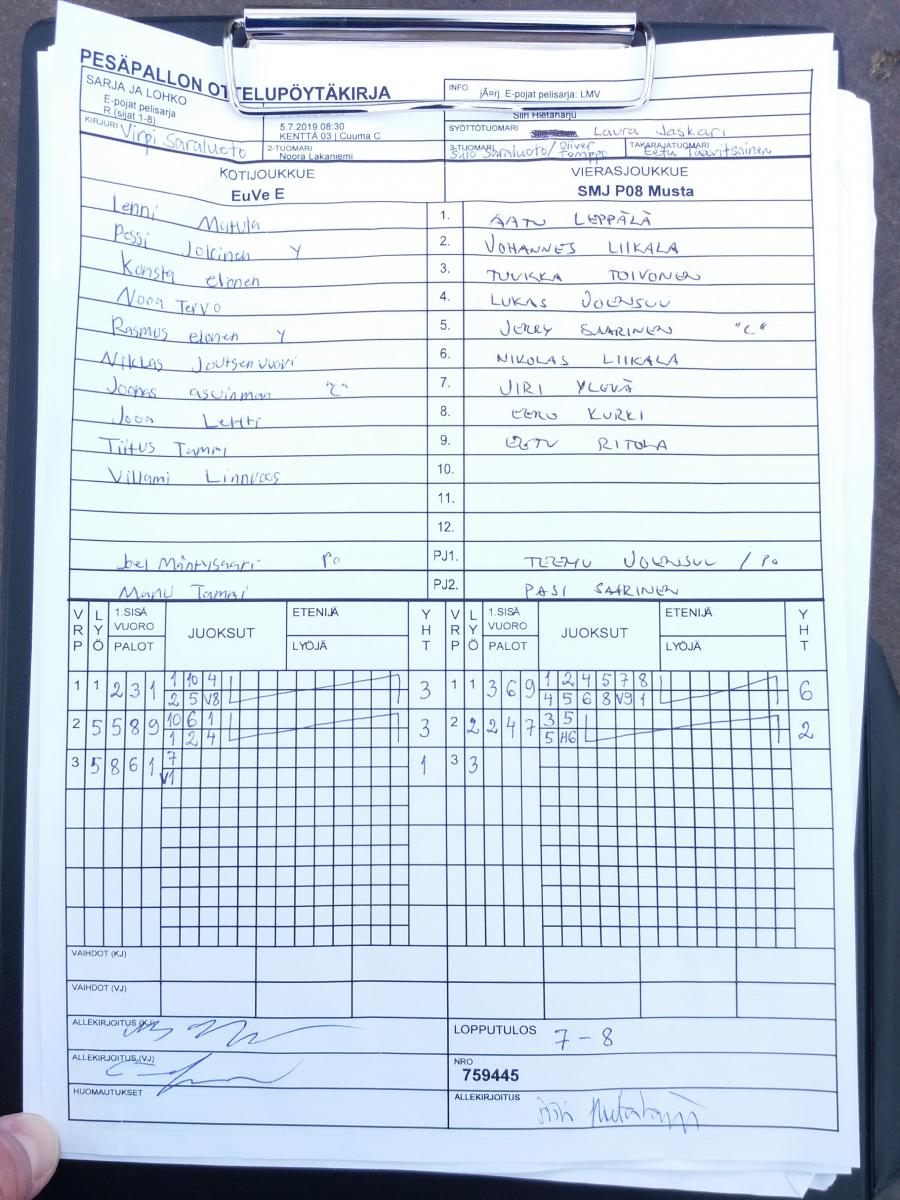 PESÄPALLON OTTELUPÖYTÄKIRJA
SARJA JA LOHKO
E-pojat pelisarja
R (sijat 1-8)
INFO
jÃ¤rj. E-pojat pelisarja: LMV
KIRJURI Virpi Saraluoto
5.7.2019 08:30
KENTTÄ 03 | Cuuma C
Siiri Hietaharju
SYÖTTÖTUOMARI Laura Jaskari
2-TUOMARI
Noora Lakaniemi
3-TUOMARI
Sulo Saraluoto/Oliver
TAKARAJATUOMARI
Eetu
KOTIJOUKKUE
EuVe E
VIERASJOUKKUE
SMJ P08 Musta
Lenni Matula 1. AATU LEPPÄLÄ
Pessi Jokinen Y 2. JOHANNES LIIKALA
Konsta elonen 3. TUUKKA TOIVONEN
Nooa Tervo 4. LUKAS JOENSUU
Rasmus elonen Y 5. JERRY SAARINEN "C"
Niklas Joutsenvuori 6. NIKOLAS LIIKALA
Joonas asuinmaa "C" 7. JIRI YLEVÄ
Joon Lehti 8. EERO KURKI
Tiitus Tammi 9. EETU RITOLA
Villami Linnvoos 10.
11.
12.
Joel Mäntysaari Po PJ1. TEEMU JOENSUU / Po
Manu Tammi PJ2. PASI SAARINEN
VRP LYÖ 1.SISÄ VUORO PALOT JUOKSUT ETENIJÄ LYÖJÄ YHT VRP LYÖ 1.SISÄ VUORO PALOT JUOKSUT ETENIJÄ LYÖJÄ YHT
1 1 2 3 1 1 10 4 3 1 1 3 6 9 1 2 4 5 7 8 6
2 5 V8 4 5 6 8 V9 1
2 5 5 8 9 10 6 1 3 2 2 2 4 7 3 5 2
1 2 4 5 H6
3 5 8 6 1 7 1 3 3
V1
VAIHDOT (KJ)
VAIHDOT (VJ)
ALLEKIRJOITUS (KJ)
LOPPUTULOS 7-8
ALLEKIRJOITUS (VJ)
NRO
759445
HUOMAUTUKSET
ALLEKIRJOITUS